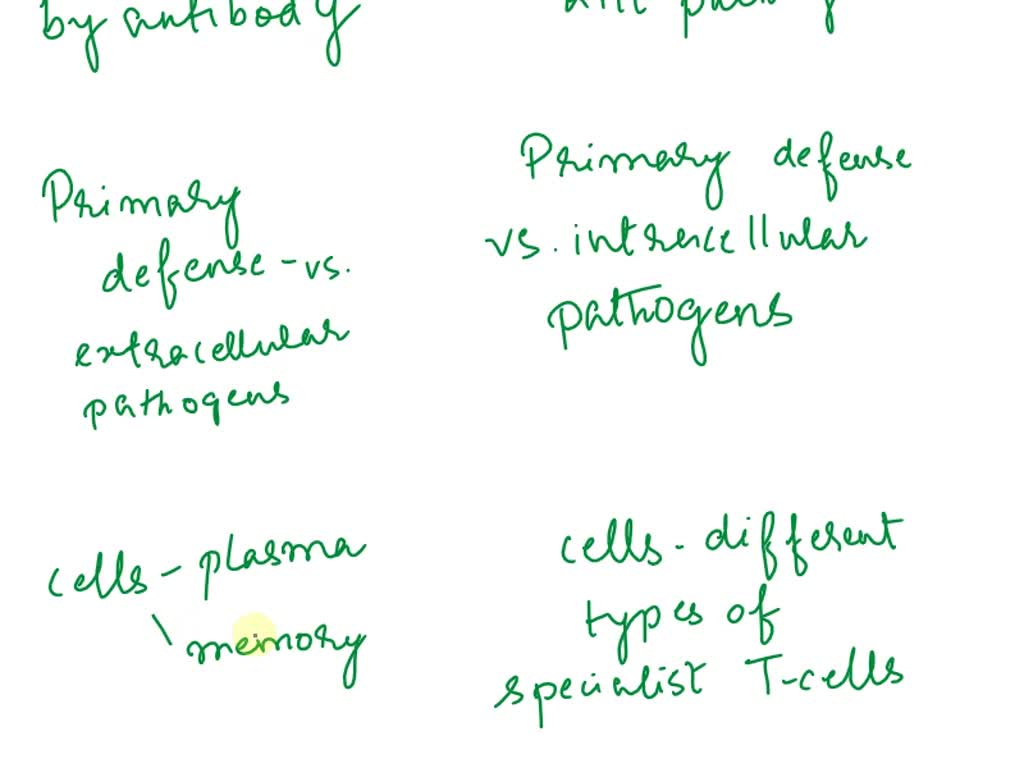 by antibody
Primary
defense - vs.
extracellular
pathogens
cells - plasma
\ memory
Primary defense
vs. intracellular
pathogens
cells - different
types of
specialist T-cells